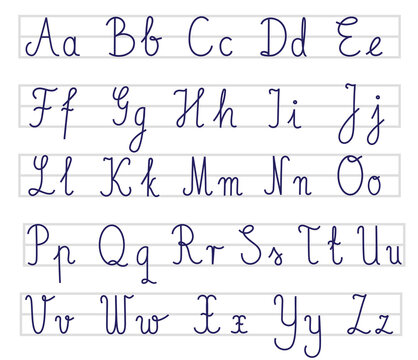 Aa Bb Cc Dd Ee
Ff Gg Hh Ii Jj
Ll Kk Mm Nn Oo
Pp Qq Rr Ss Tt Uu
Vv Ww Xx Yy Zz